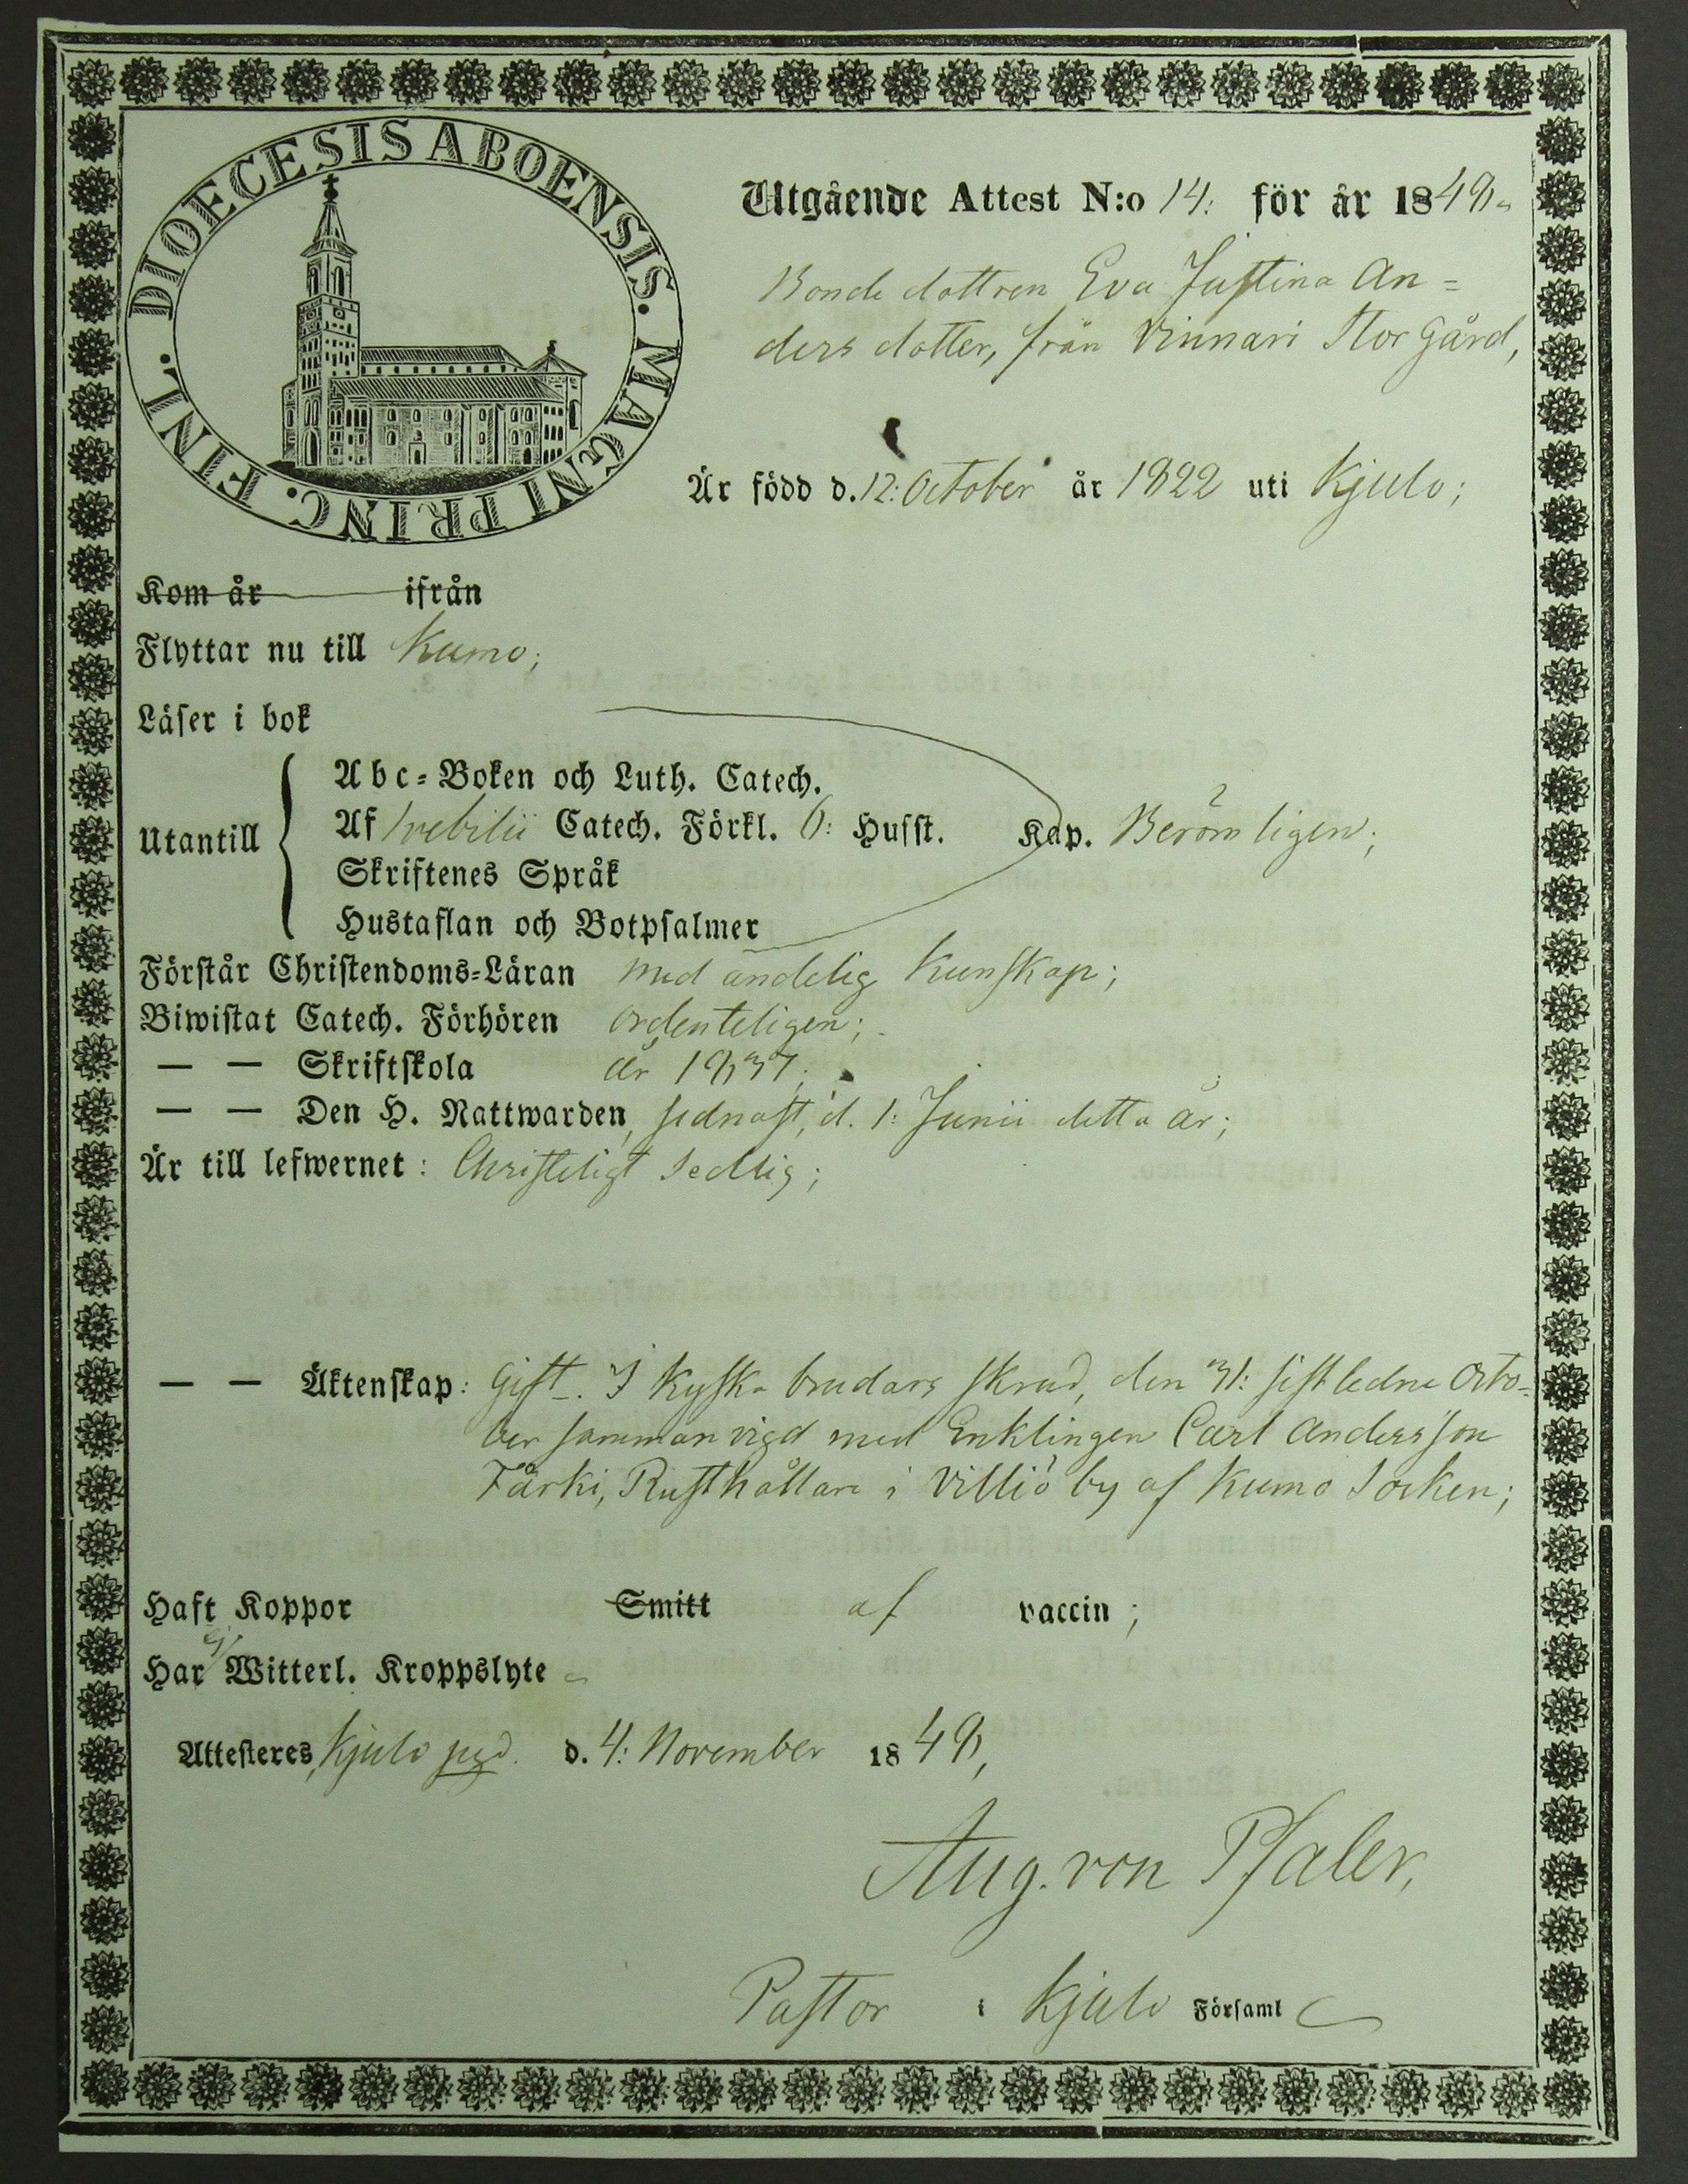 DIOECESIS ABOENSIS. MAGNI PRINC. FINL.
Utgående Attest N:o 14: för år 1849.
Bonde dottren Eva Justina An=
ders dotter, från Vinnari Storgård,
Är född d. 12: October år 1822 uti Kjulo;
Kom år ifrån
Flyttar nu till Kumo;
Läser i bok
Utantill
Abc=Boken och Luth. Catech.
Af Svebilii Catech. Förkl. 6: Husst. Kap. Berömligen;
Skriftenes Språk
Hustaflan och Botpsalmer
Förstår Christendoms=Läran med andelig Kunskap;
Biwistat Catech. Förhören ordenteligen;
— — Skriftskola år 1837;
— — Den H. Nattwarden, sednast, d. 1: Junii detta år;
Är till lefwernet: Christeligt Sedlig;
— — Äktenskap: Gift. I Kyska brudars skrud, den 31: sistledne Octo-
ber sammanvigd med Enklingen Carl Andersson
Färki, Rusthållare i Villiö by af Kumo Socken;
Haft Koppor Smitt af vaccin;
Har ej Witterl. Kroppslyte
Attesteres, Kjulo pgd. d. 4: November 1849,
Aug. von Pfaler,
Pastor i Kjulo Församl